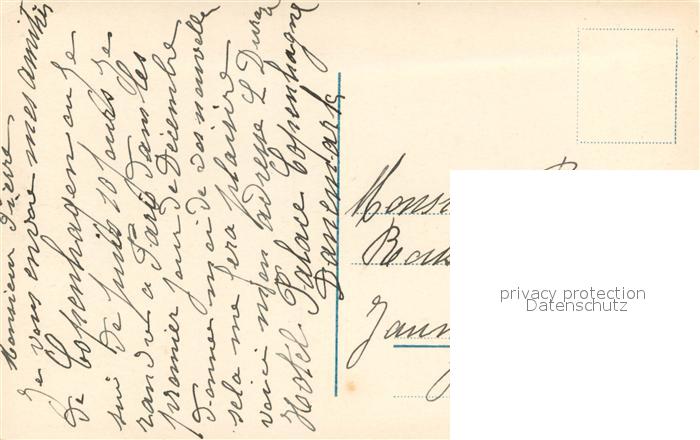 Monsieur Pierre
Je vous envoie mes amitiés
de Copenhagen ou Je
sui de puis 10 Jours Je
randre a Paris dans les
premier Jour de Décembre
donner moi de vos nouvelle
sela me fera plaisire
voici mon adresse L Duran
Hotel Palace Copenhague
Danemark
Monsi
Rou
Jaun
privacy protection
Datenschutz